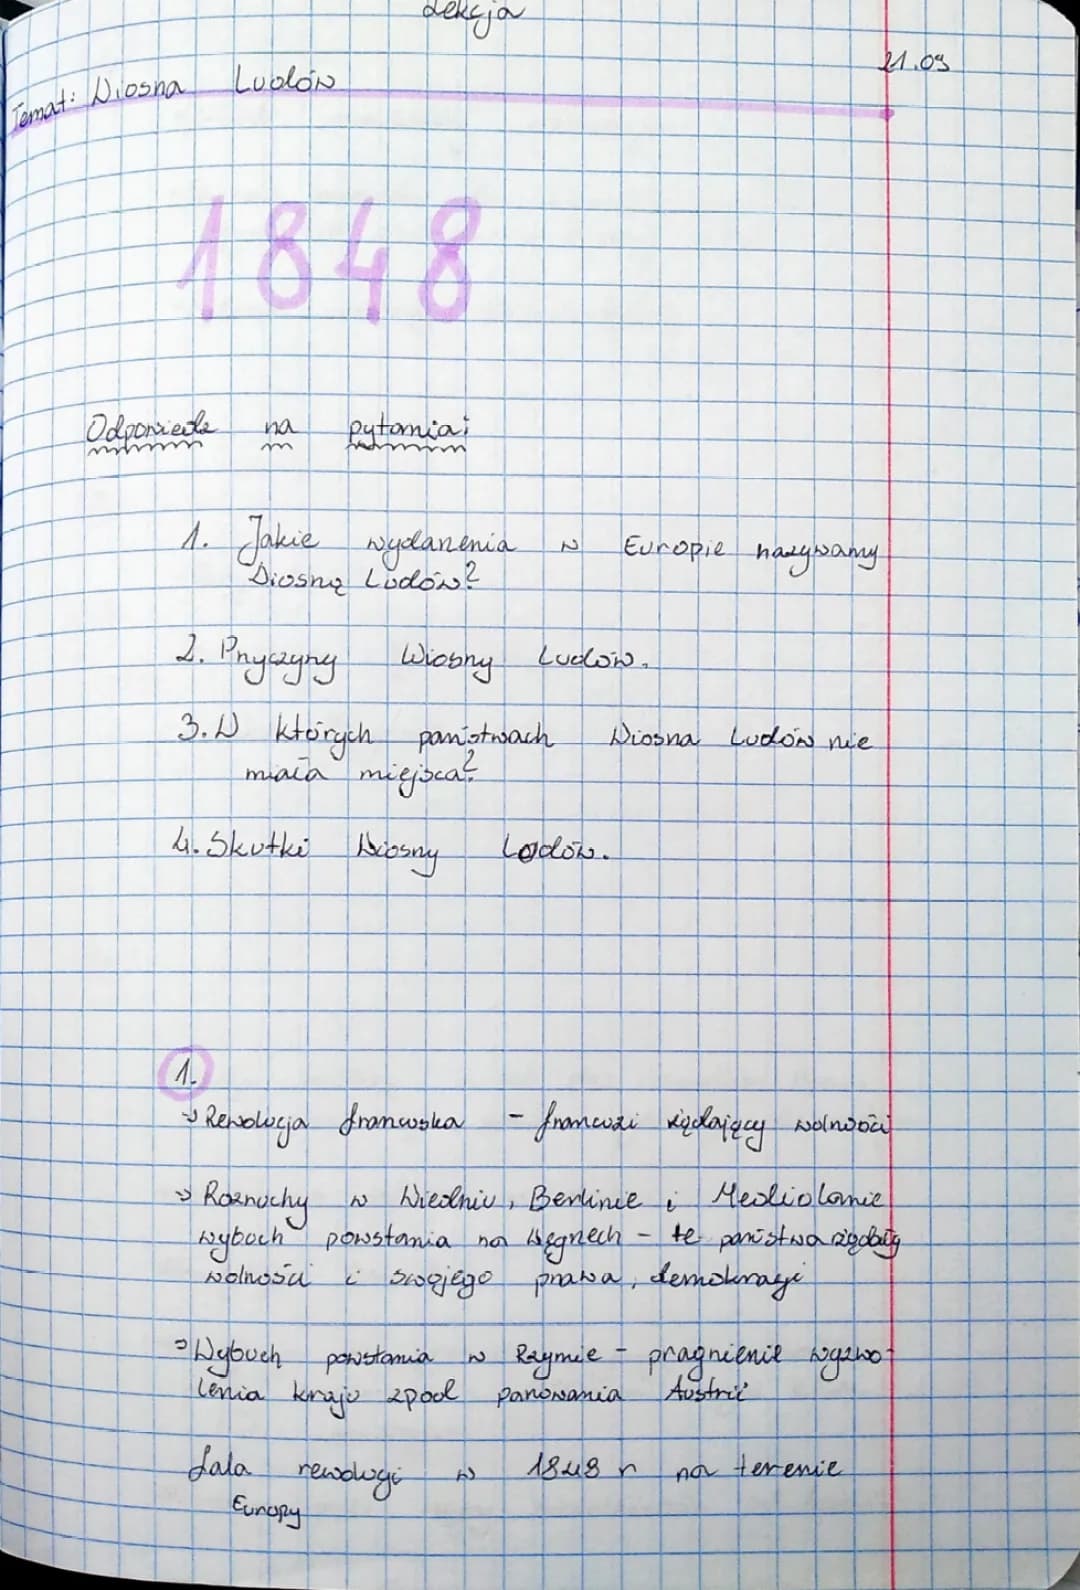 Lekcja
21.09
Temat: Wiosna Ludów
1848
Odpowiedz na pytania:
1. Jakie wydarzenia w Europie nazywamy
Wiosną Ludów?
2. Przyczyny Wiosny Ludów.
3. W których państwach Wiosna Ludów nie
miała miejsca?
4. Skutki Wiosny Ludów.
1.
→ Rewolucja francuska - francuzi żądający wolności
→ Rozruchy w Wiedniu, Berlinie i Mediolanie
wybuch powstania na Węgrzech - te państwa żądały
wolności i swojego prawa, demokracji
→ Wybuch powstania w Rzymie - pragnienie wyzwo-
lenia kraju spod panowania Austrii
Fala rewolucji w 1848 r na terenie
Europy